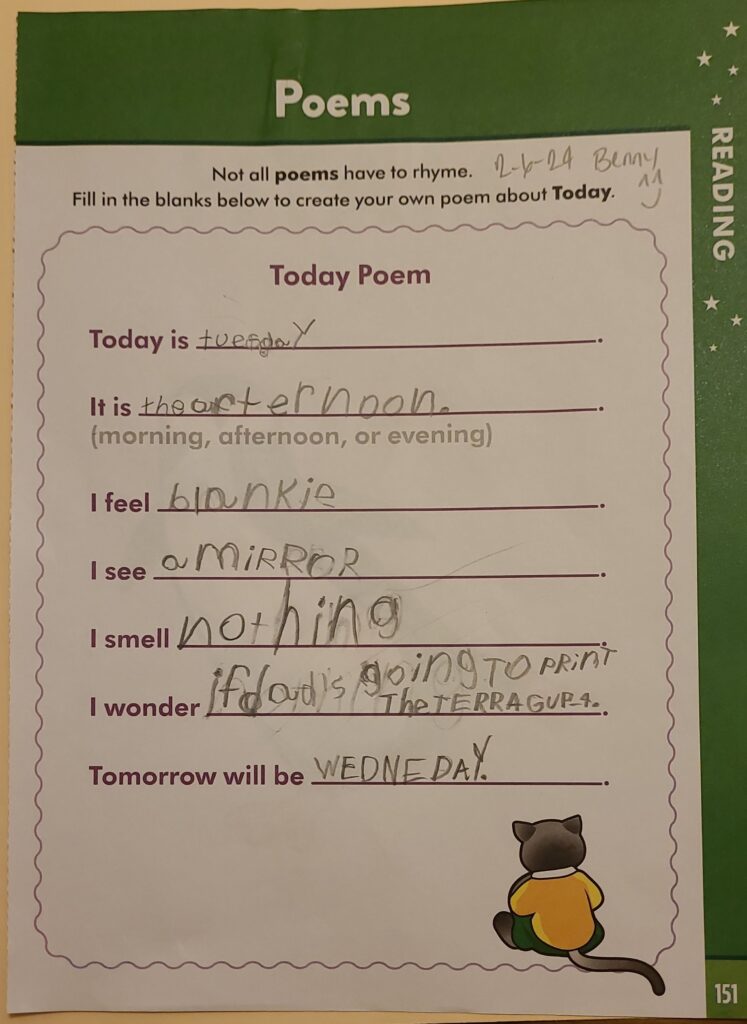 Poems
READING
Not all poems have to rhyme. 2-6-24 Benny
Fill in the blanks below to create your own poem about Today.
Today Poem
Today is tuesday.
It is the arternoon..
(morning, afternoon, or evening)
I feel blankie.
I see a MiRROR.
I smell nothing.
if dad's going TO PRiNT
I wonder The TERRAGUP-1..
Tomorrow will be WEDNEDAY..
151